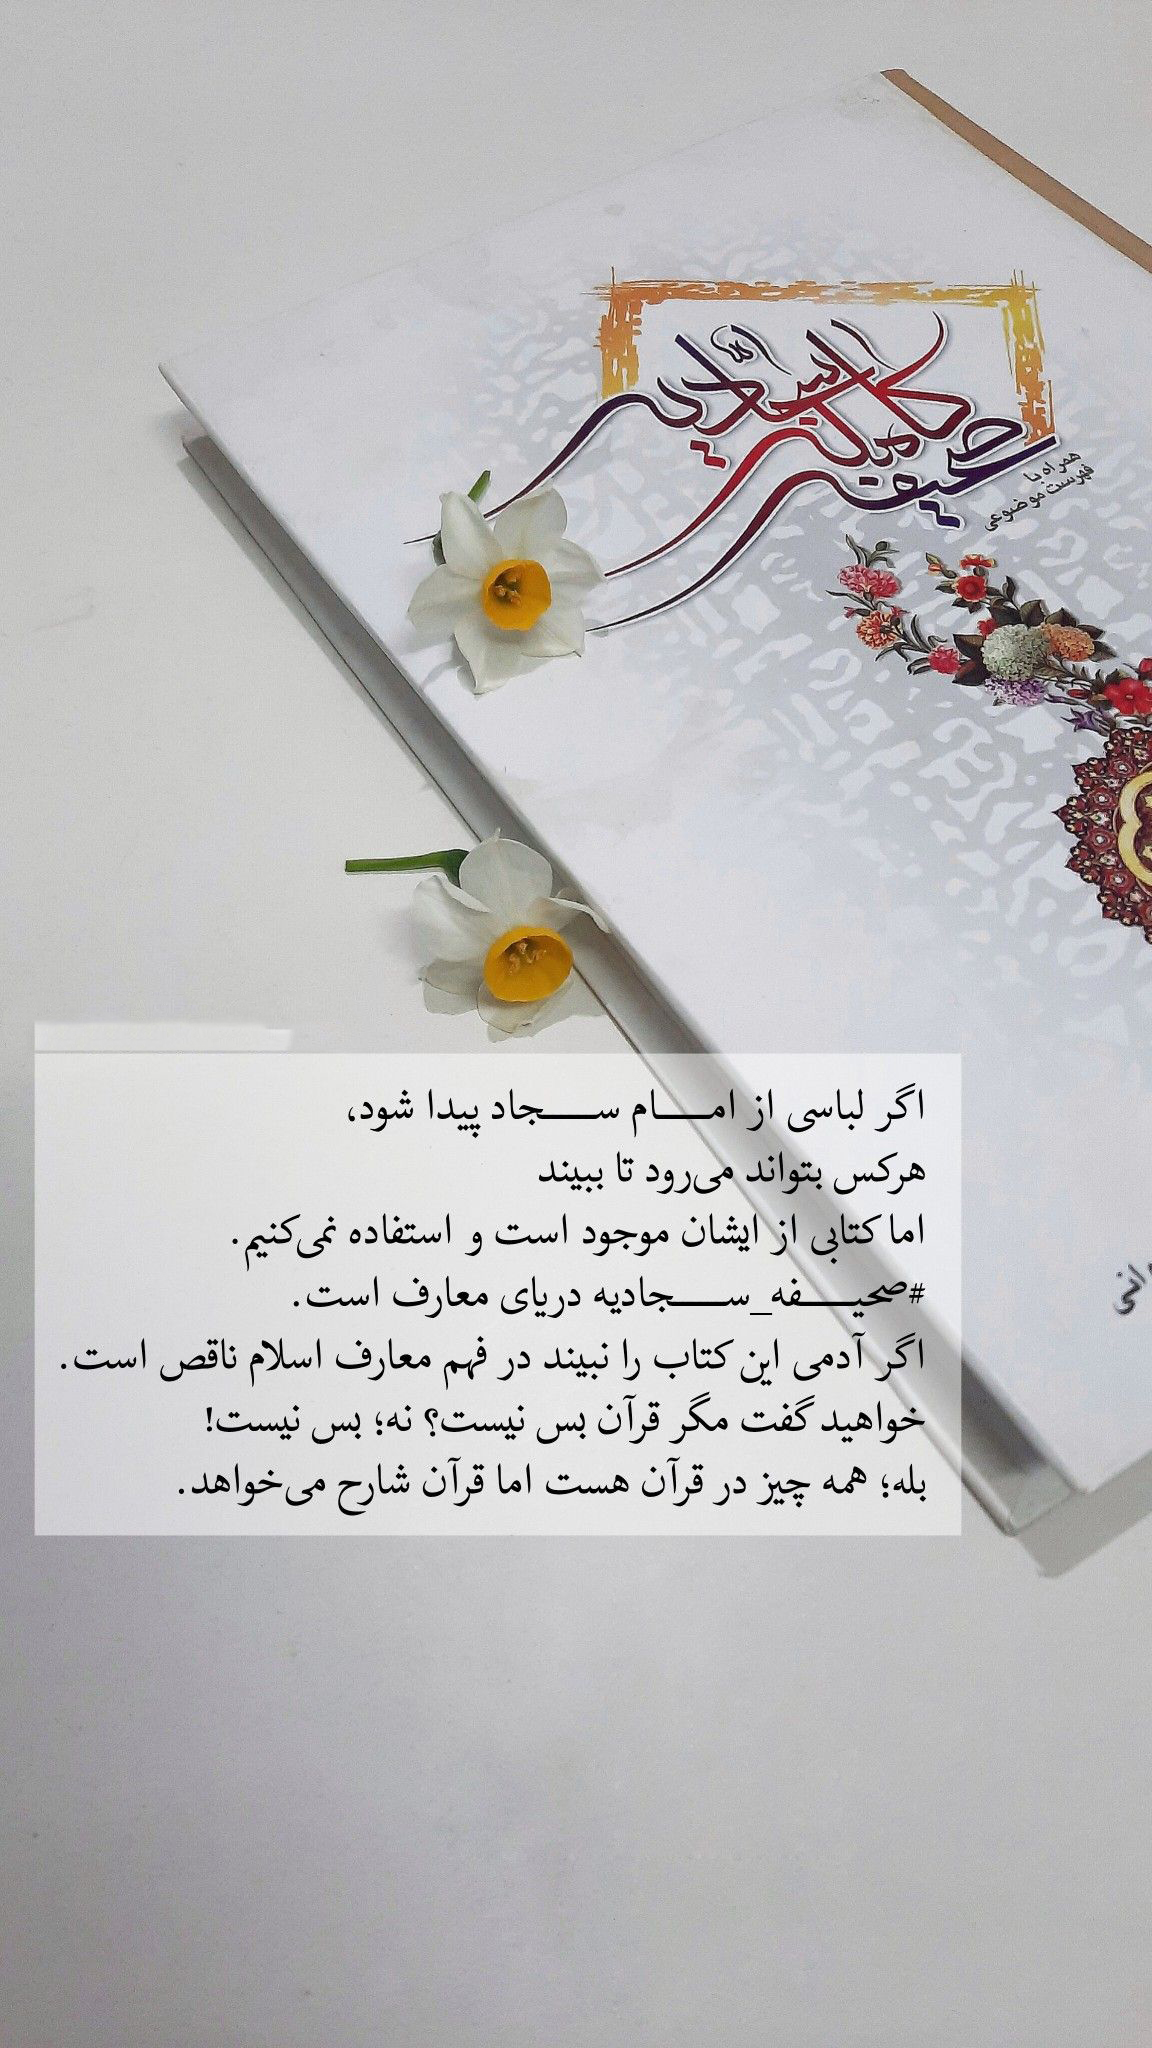 صحیفه کامله سجادیه
همراه با
فهرست موضوعی
اگر لباسی از امـــام ســـجاد پیدا شود،
هرکس بتواند می‌رود تا ببیند
اما کتابی از ایشان موجود است و استفاده نمی‌کنیم.
#صحیـــفه_ســـجادیه دریای معارف است.
اگر آدمی این کتاب را نبیند در فهم معارف اسلام ناقص است.
خواهید گفت مگر قرآن بس نیست؟ نه؛ بس نیست!
بله؛ همه چیز در قرآن هست اما قرآن شارح می‌خواهد.